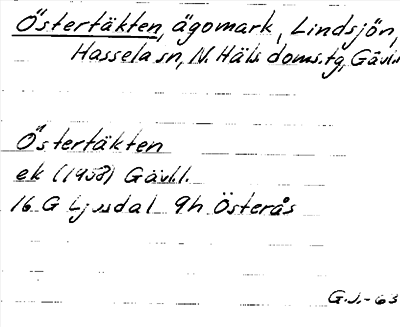 Östertäkten, ägomark, Lindsjön,
Hassela sn, N. Häls doms.tg, Gävl.l
Östertäkten
ek (1958) Gävl.l.
16 G Ljusdal 9h Österås
G.J.-63